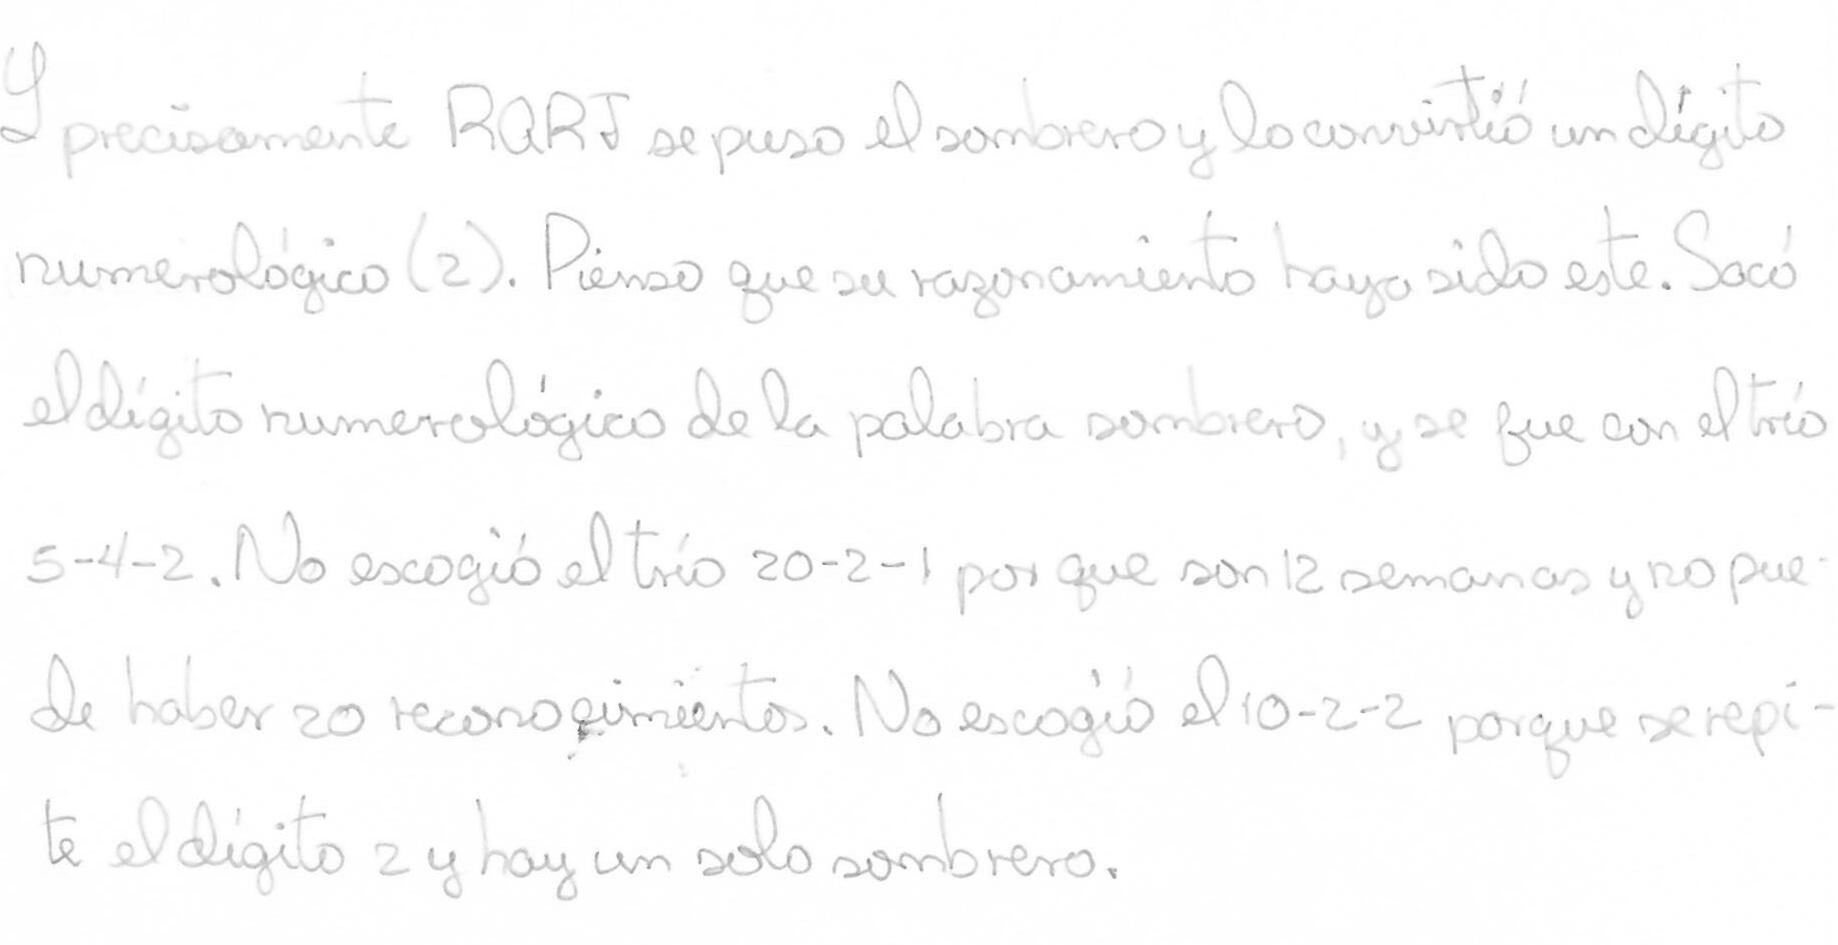 Y precisamente RQRJ se puso el sombrero y lo convirtió un dígito
numerológico (2). Pienso que su razonamiento haya sido este. Sacó
el dígito numerológico de la palabra sombrero, y se fue con el trío
5-4-2. No escogió el trío 20-2-1 porque son 12 semanas y no pue-
de haber 20 reconocimientos. No escogió el 10-2-2 porque se repi-
te el dígito 2 y hay un solo sombrero.